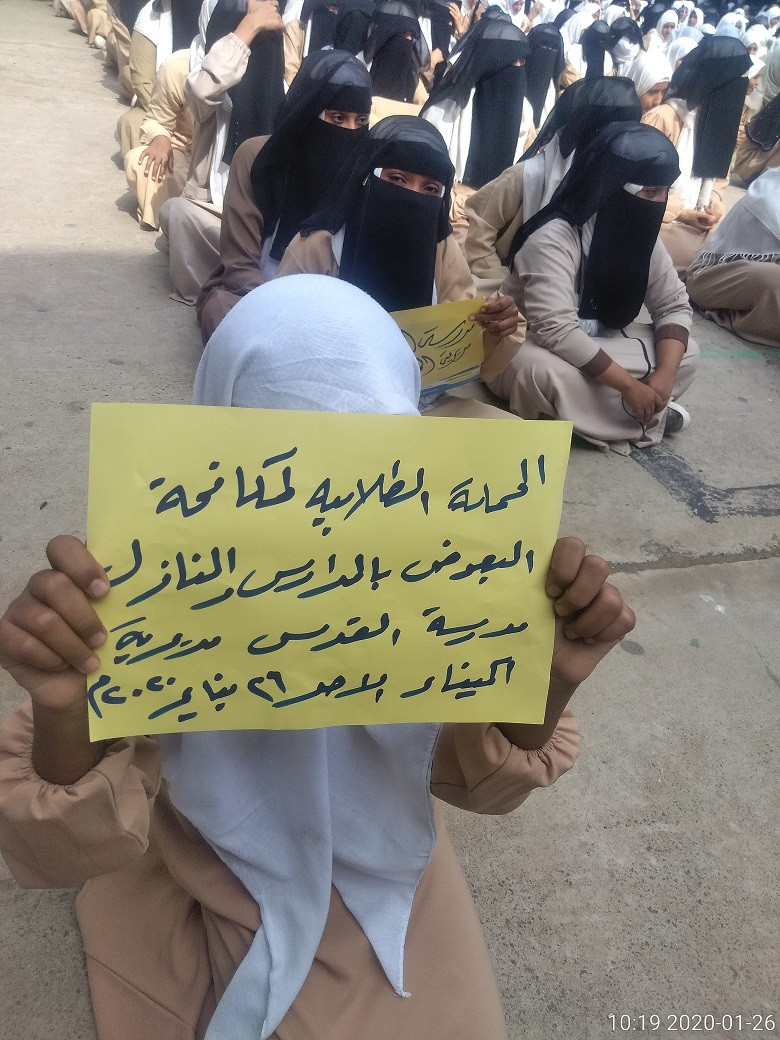 الحملة الطلابيه لمكافحة
البعوض بالمدارس والمنازل
مدرسة القدس مديرية
الميناء الاحد ٢٦ يناير ٢٠٢٠م
مدرسة
10:19 2020-01-26